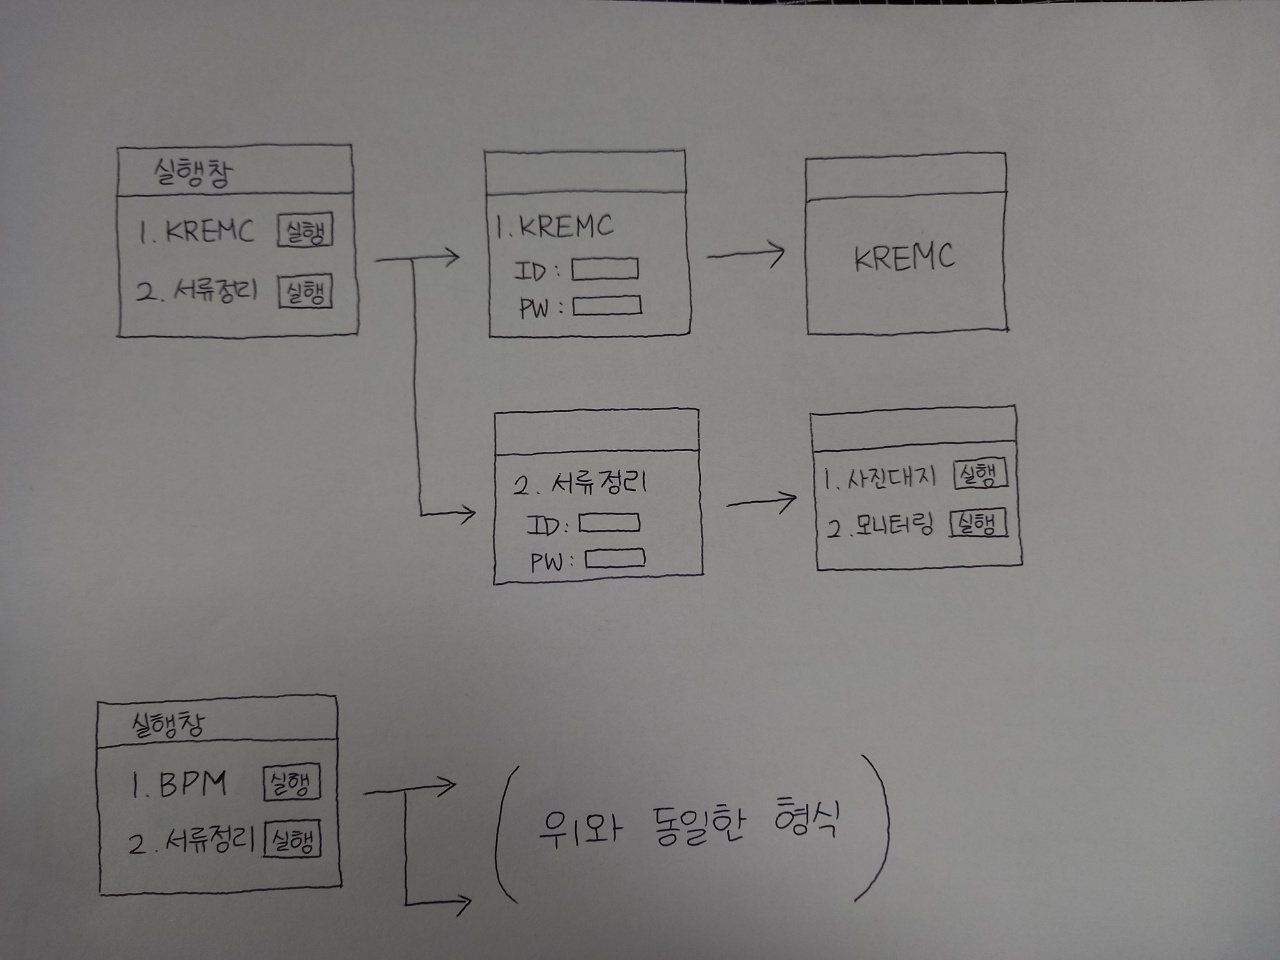 실행창
1. KREMC 실행
2. 서류정리 실행
1. KREMC
ID :
PW :
KREMC
2. 서류정리
ID :
PW :
1. 사진대지 실행
2. 모니터링 실행
실행창
1. BPM 실행
2. 서류정리 실행
( 위와 동일한 형식 )